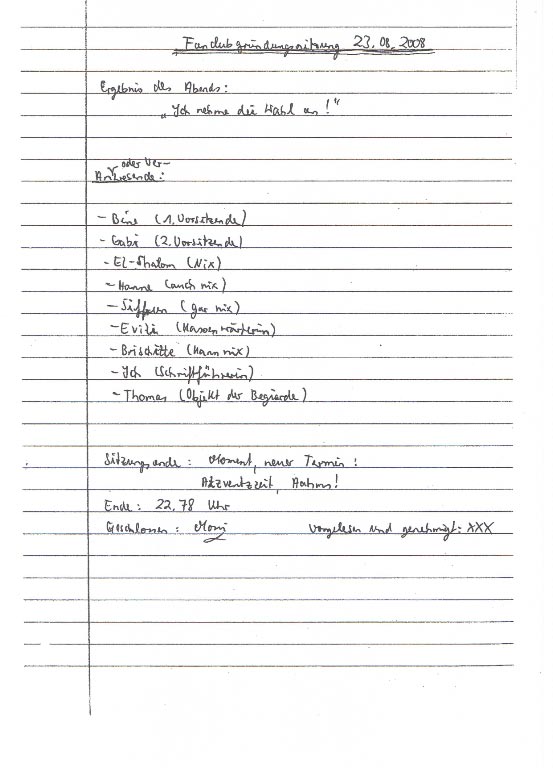 Fanclubgründungssitzung 23.08.2008
Ergebnis des Abends:
"Ich nehme die Wahl an!"
oder Ver-
Anwesende:
- Bine (1. Vorsitzende)
- Gabi (2. Vorsitzende)
- El-Shalom (Nix)
- Hanne (auch nix)
- (gar nix)
- Evita (Kassenwärterin)
- Brischitte (Kann nix)
- Ich (Schriftführerin)
- Thomas (Objekt der Begierde)
Sitzungsende: Moment, neuer Termin!
Adventszeit,
Ende: 22,78 Uhr
Geschlossen: Moni vorgelesen und genehmigt: XXX